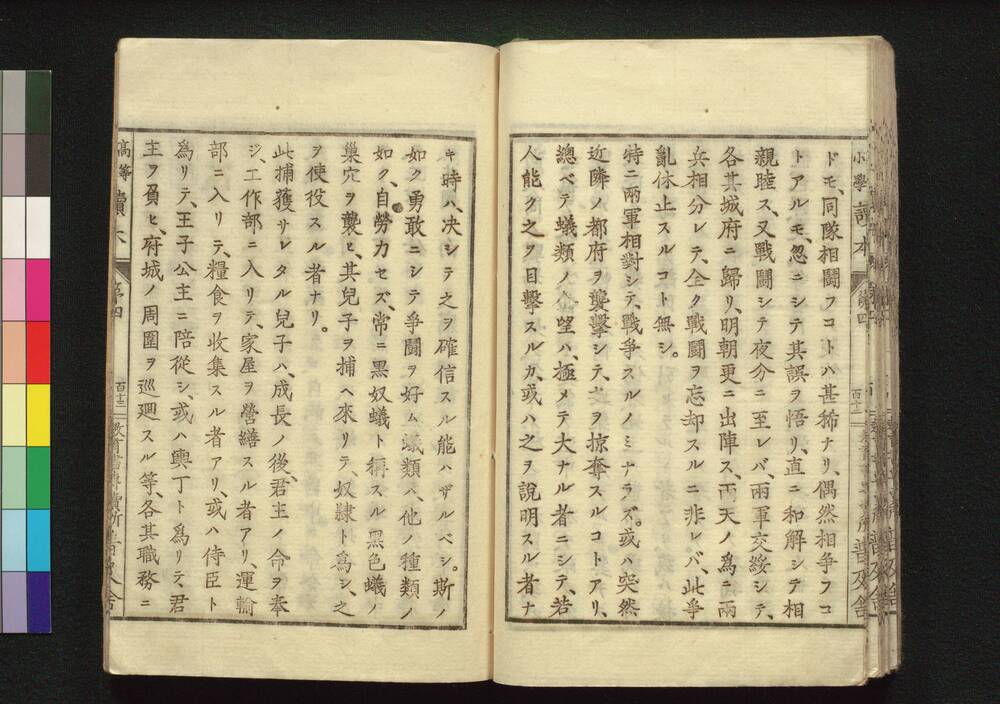 ドモ、同隊相闘フコトハ甚稀ナリ、偶然相爭フコ
トアルモ、忽ニシテ其誤ヲ悟リ、直ニ和解シテ相
親睦ス、又戰闘シテ夜分ニ至レバ、兩軍交綏シテ、
各其城府ニ歸リ、明朝更ニ出陣ス、雨天ノ爲ニ兩
兵相分レテ、全ク戰闘ヲ忘却スルニ非レバ、此爭
亂休止スルコト無シ。
特ニ兩軍相對シテ、戰爭スルノミナラズ。或ハ突然
近隣ノ都府ヲ襲擊シテ、之ヲ掠奪スルコトアリ、
總ベテ蟻類ノ企望ハ、極メテ大ナル者ニシテ、若
人能ク之ヲ目擊スルカ、或ハ之ヲ說明スル者ナ
キ時ハ、决シテ之ヲ確信スル能ハザルベシ。斯ノ
如ク勇敢ニシテ爭闘ヲ好ム蟻類ハ、他ノ種類ノ
如ク、自勞力セズ、常ニ黑奴蟻ト稱スル黑色蟻ノ
巢穴ヲ襲ヒ、其兒子ヲ捕ヘ來リテ、奴隸ト爲シ、之
ヲ使役スル者ナリ。
此捕獲サレタル兒子ハ、成長ノ後、君主ノ命ヲ奉
ジ、工作部ニ入リテ、家屋ヲ營繕スル者アリ、運輸
部ニ入リテ、糧食ヲ收集スル者アリ、或ハ侍臣ト
爲リテ、王子公主ニ陪從シ、或ハ輿丁ト爲リテ、君
主ヲ負ヒ、府城ノ周圍ヲ巡廻スル等、各其職務ニ
高等讀本
第四
百十三